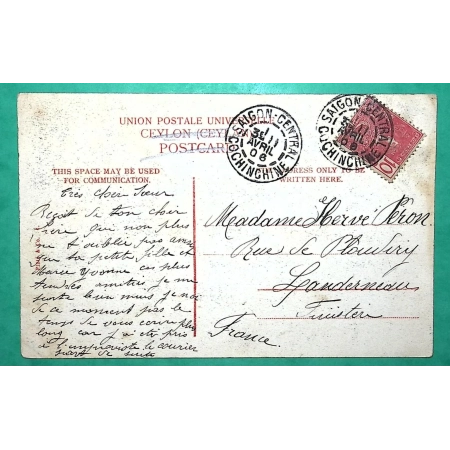 UNION POSTALE UNIVERSELLE
CEYLON (CEYLAN)
POSTCARD
THIS SPACE MAY BE USED
FOR COMMUNICATION.
ADDRESS ONLY TO BE
WRITTEN HERE.
SAIGON-CENTRAL
11
AVRIL
08
COCHINCHINE
SAIGON-CENTRAL
AVRIL
08
COCHINCHINE
10
Très cher Sœur
Reçoit de ton cher
frère qui non plus
ne t'oublier pas
que ta petite fille et
Marie Yvonne ces plus
tendres amitiés, je me
porte bien mais je n'ai
de ce moment pas le
temps de vous écrire plus
long car j'ai été pris
à l'improviste le courier
part de suite
Madame Hervé Péron
Rue de Ploudiry
Landerneau
Finistère
France